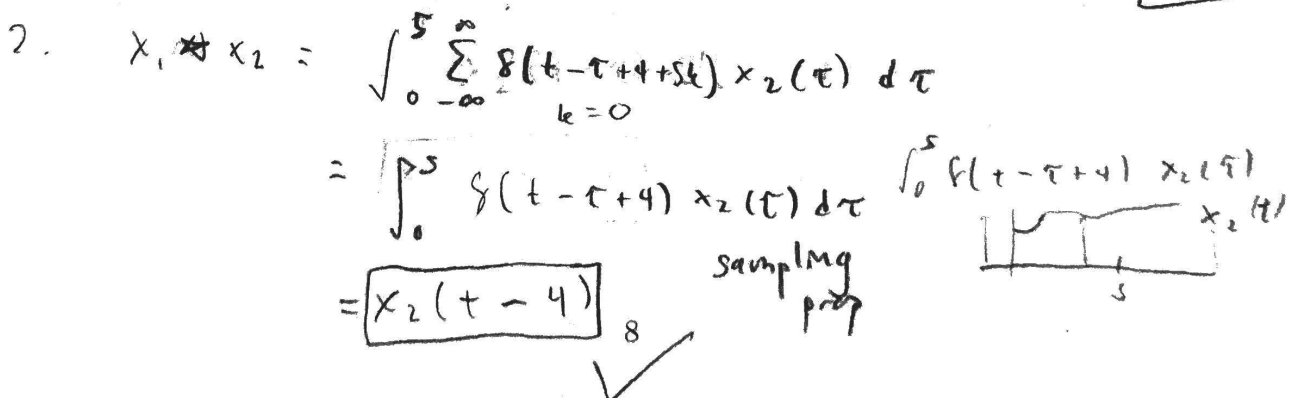 2. x₁ ⊛ x₂ = ∫₀⁵ Σ_{-∞}^{∞} δ(t-τ+4+5k) x₂(τ) dτ
k=0
= ∫₀⁵ δ(t-τ+4) x₂(τ) dτ
∫₀⁵ δ(t-τ+4) x₂(τ)
x₂(t)
5
= x₂(t-4)
sampling
prop
8